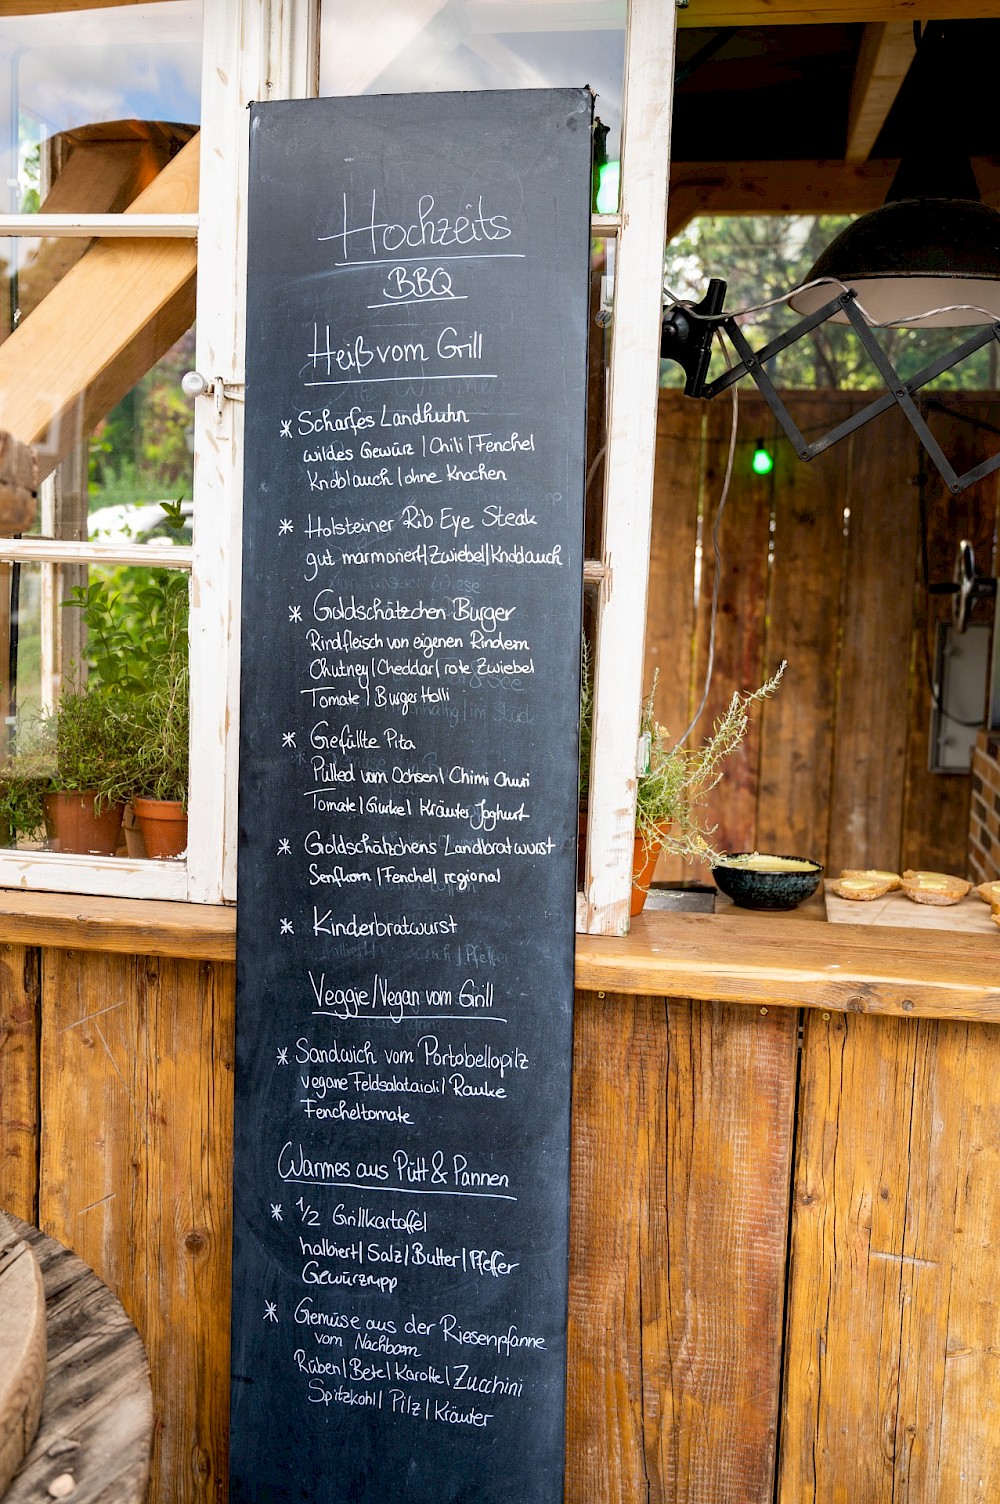 Hochzeits
BBQ
Heiß vom Grill
* Scharfes Landhuhn
wildes Gewürz | Chili | Fenchel
Knoblauch | ohne Knochen
* Holsteiner Rib Eye Steak
gut marmoriert | Zwiebel | Knoblauch
* Goldschätzchen Burger
Rindfleisch von eigenen Rindern
Chutney | Cheddar | rote Zwiebel
Tomate | Burger Holli
* Gefüllte Pita
Pulled vom Ochsen | Chimi Churi
Tomate | Gurke | Kräuter Joghurt
* Goldschätzchens Landbratwurst
Senfkorn | Fenchell regional
* Kinderbratwurst
Veggie/Vegan vom Grill
* Sandwich vom Portobellopilz
vegane Feldsalataioli | Rauke
Fencheltomate
Warmes aus Pütt & Pannen
* 1/2 Grillkartoffel
halbiert | Salz | Butter | Pfeffer
* Gemüse aus der Riesenpfanne
vom Nachbarn
Rüben | Bete | Karotte | Zucchini
Spitzkohl | Pilz | Kräuter